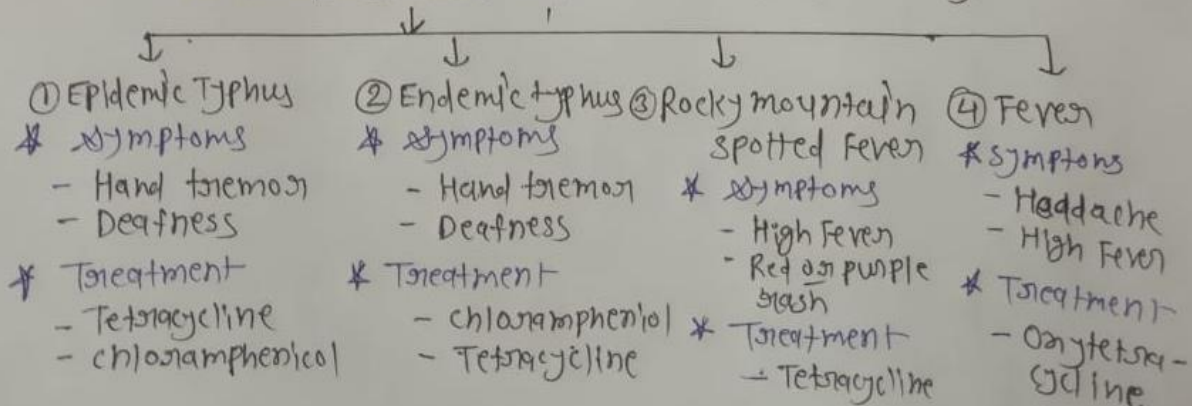 ① Epidemic Typhus
* Symptoms
- Hand tremor
- Deafness
* Treatment
- Tetracycline
- chloramphenicol
② Endemic typhus
* Symptoms
- Hand tremor
- Deafness
* Treatment
- chlorampheniol
- Tetracycline
③ Rocky mountain
spotted Fever
* Symptoms
- High Fever
- Red or purple
rash
* Treatment
- Tetracycline
④ Fever
* Symptoms
- Headache
- High Fever
* Treatment
- Oxytetra-
cycline